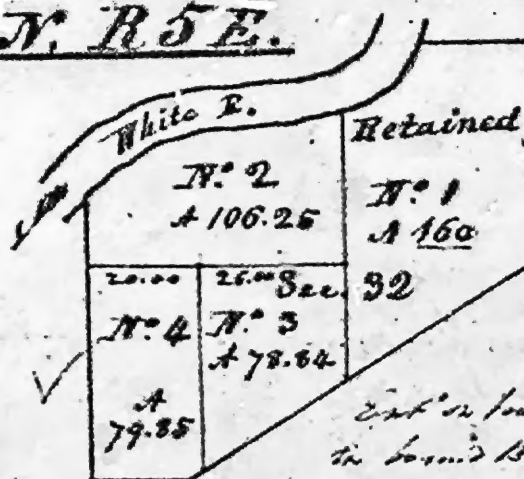 N. R 5 E.
White R.
Retained
N.o 2
A 106.25
N.o 1
A 160
20.00 26.00 Sec. 32
N.o 4 N.o 3
A 78.84
A
79.85